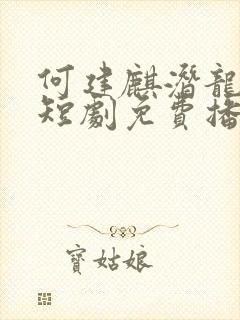 何建麒潛龍
短劇免費播
寶姑娘